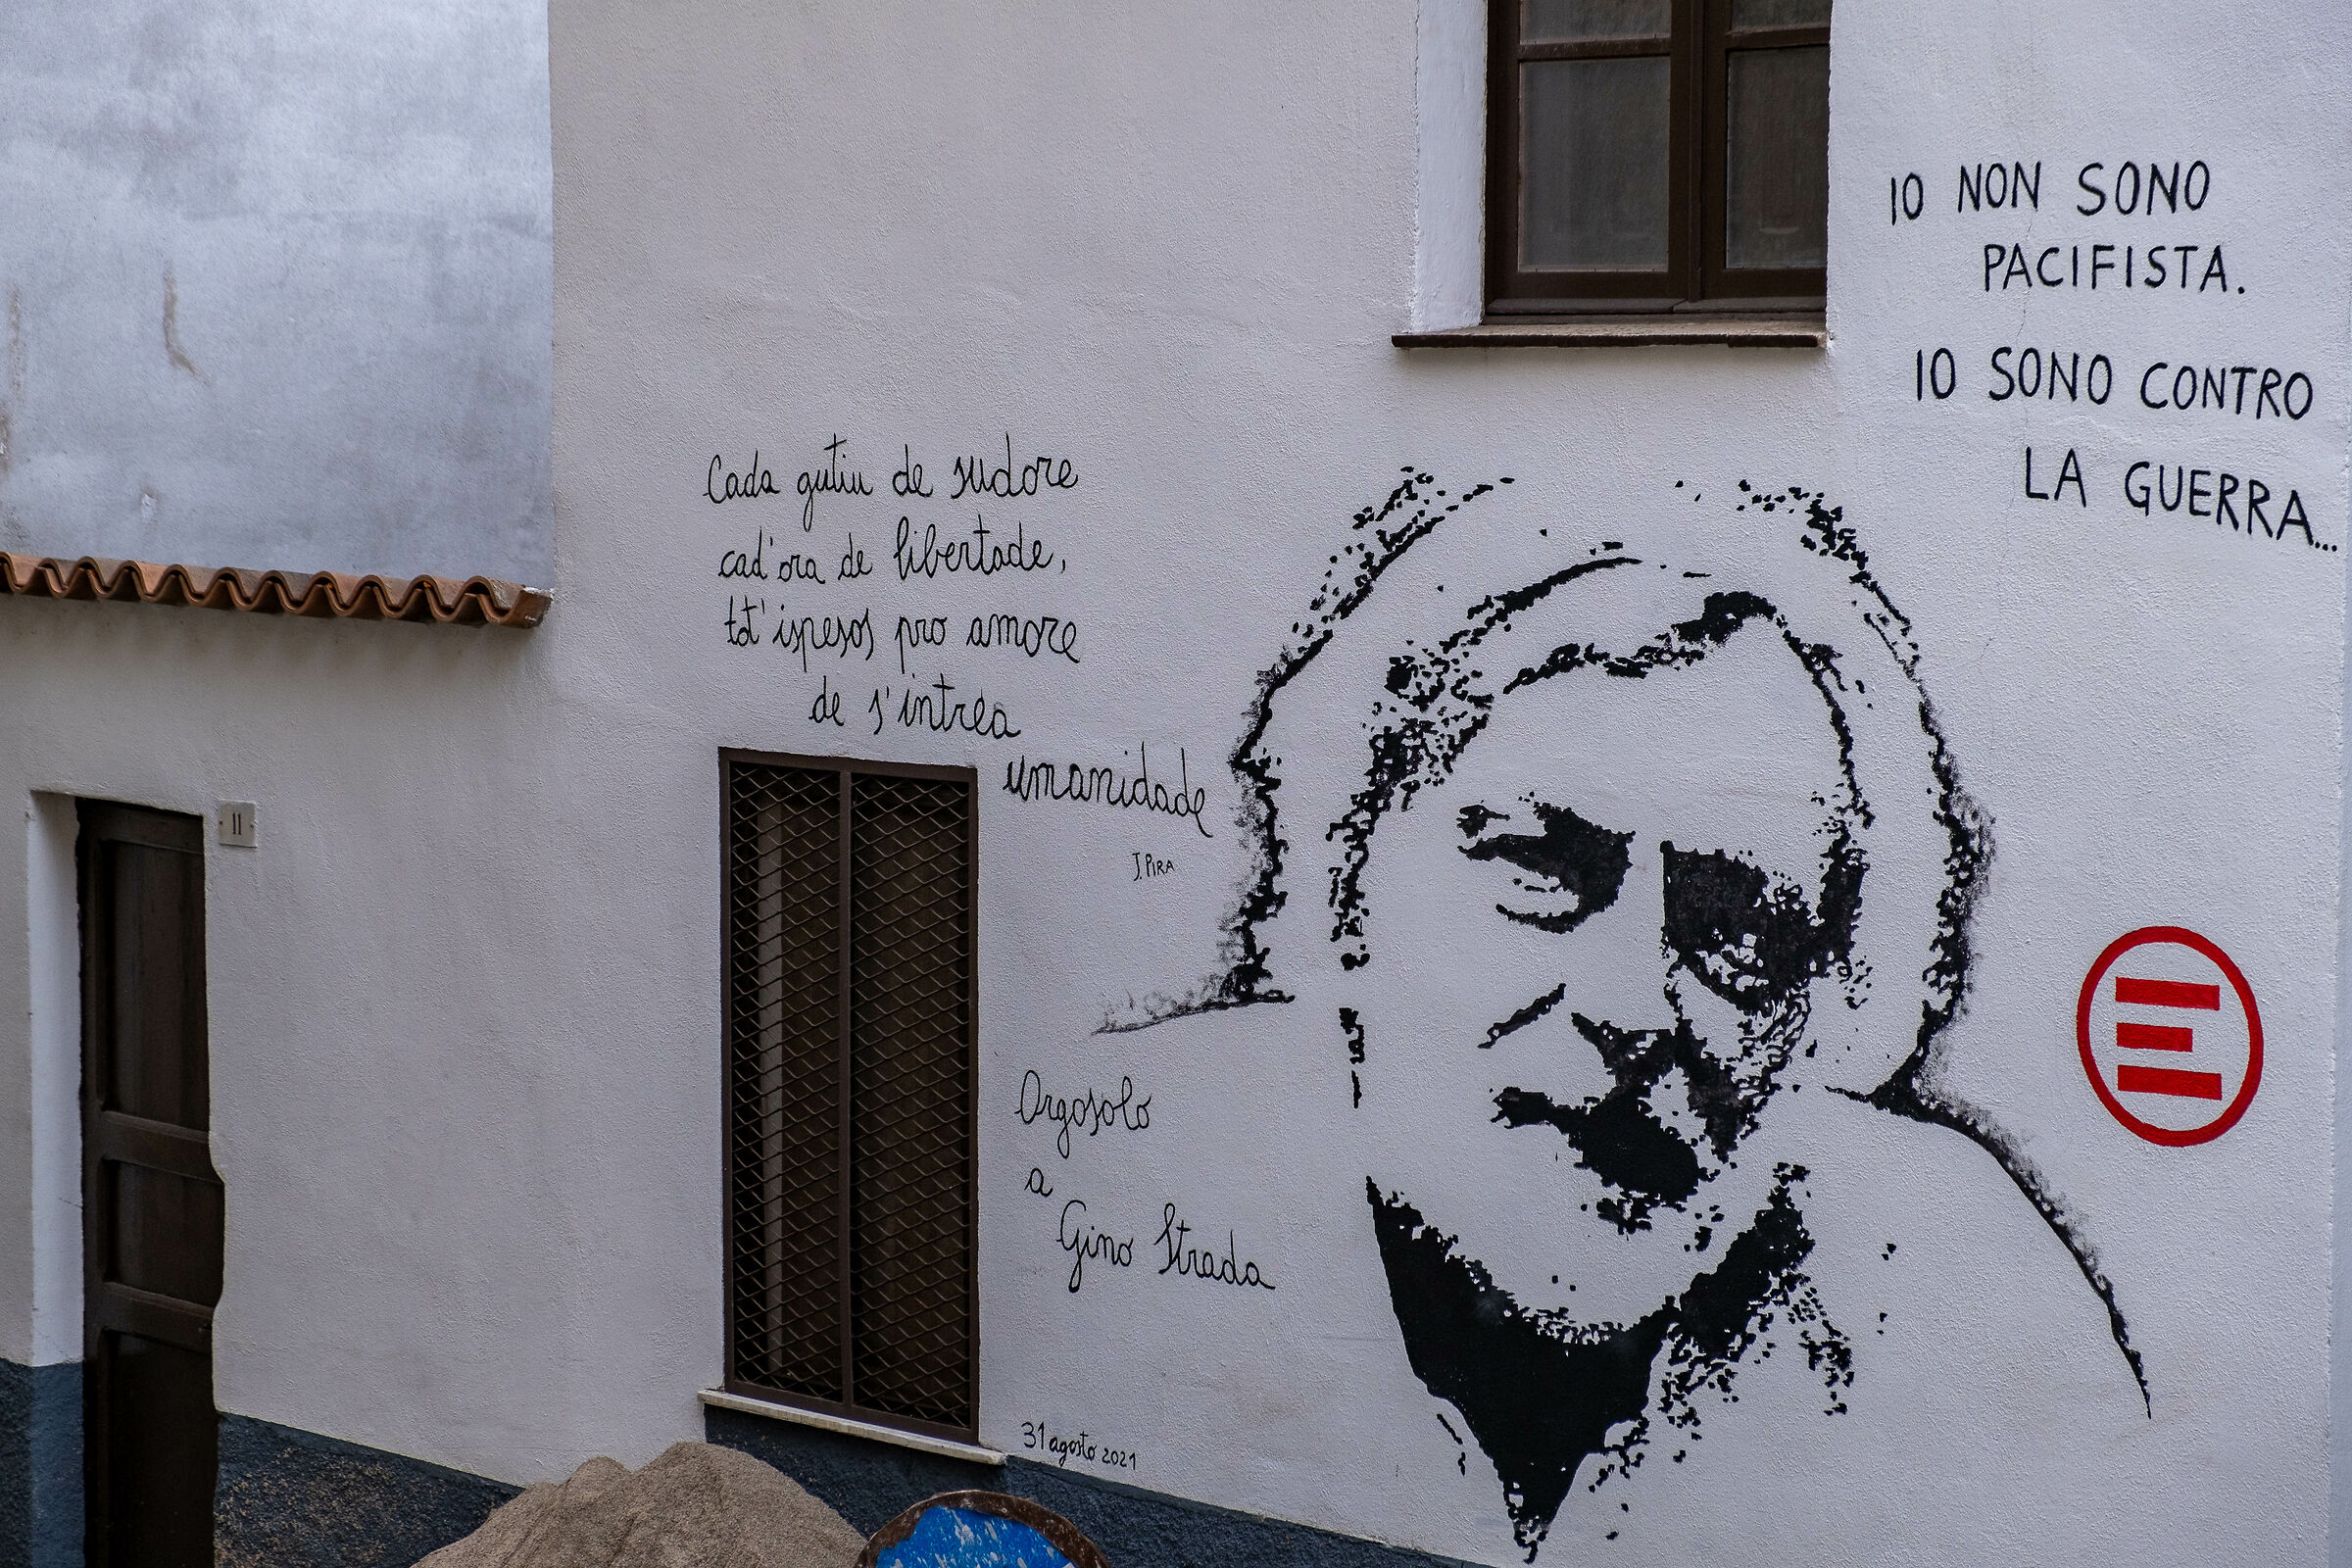 IO NON SONO
PACIFISTA.
IO SONO CONTRO
LA GUERRA...
Cada gutiu de sudore
cad'ora de libertade,
tot'ispesos pro amore
de s'intrea
umanidade
J. PIRA
11
E
Orgosolo
a
Gino Strada
31 agosto 2021